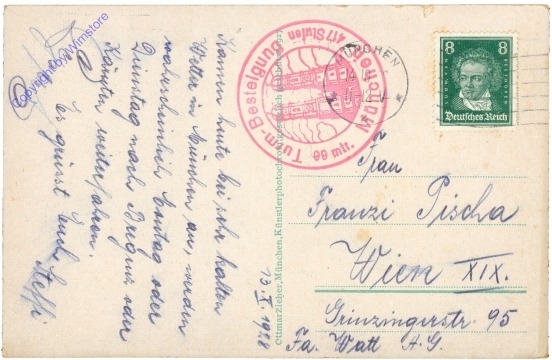 Copyright by Wimstore
Kamen heute bei sehr kalten
Wetter in München an, werden
wahrscheinlich Sontag oder
Dienstag nach Bregenz oder
weiterfahren.
Es grüsst Euch Steffi
13. X. 1928
Ottmar Zieher, München, Künstlerphotochrom
Turm-Besteigung München
417 Stufen
99 mtr.
MÜNCHEN
8 8
LUDWIG VAN BEETHOVEN
Deutsches Reich
Frau
Franzi Pischa
Wien XIX.
Grinzingerstr. 95
Fa. Watt A.G.